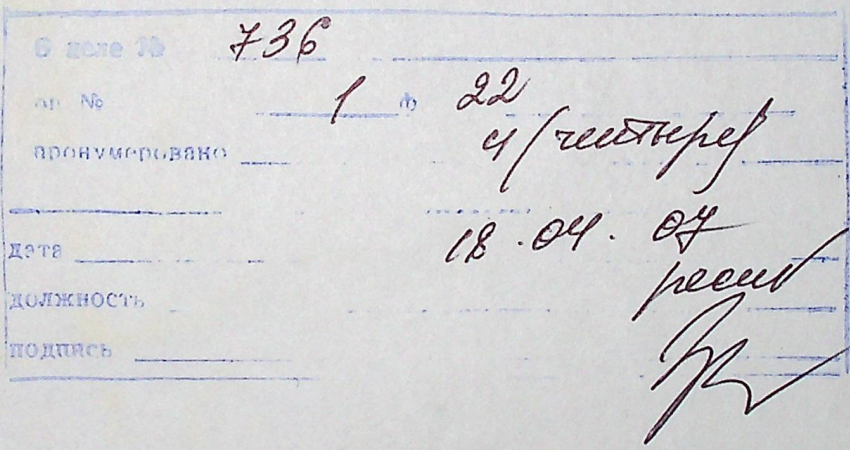 В деле № 736
оп № 1 ф 22
пронумеровано 4 (четыре)
дата 18.04.07
должность
подпись